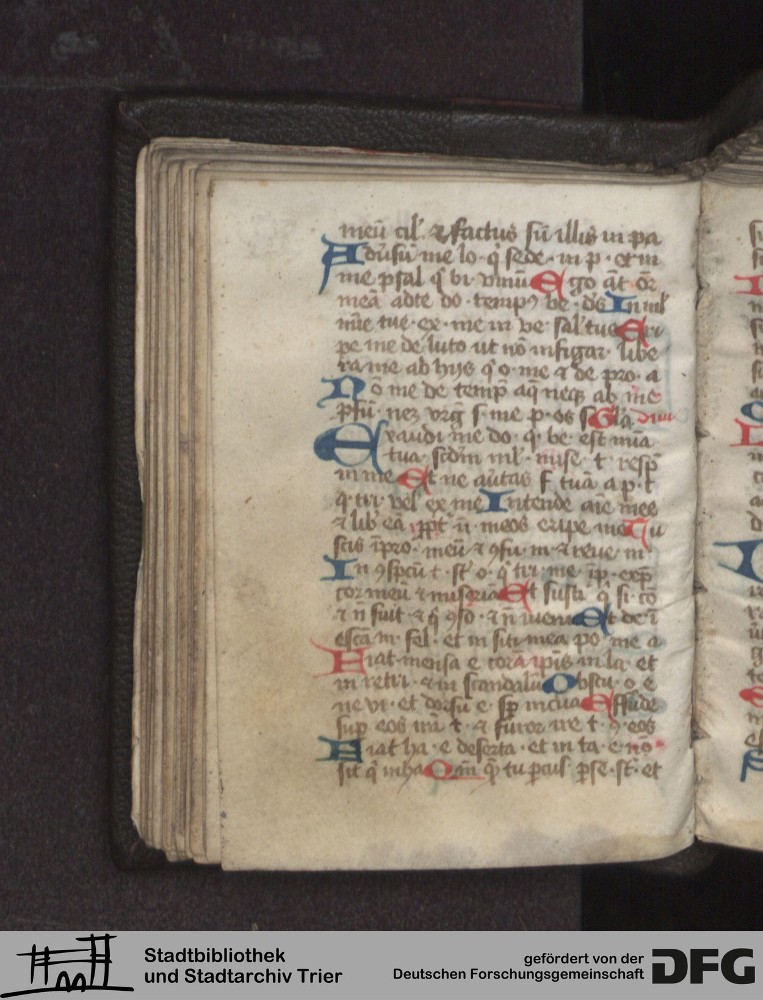 meū cil. ⁊ factus sū illis in pa
Adūsū me lo. q̄ sede. in p. et in
me psal q̄ bi. vinū Ego āt or̄
meā adte do. temp9 be. d̄s In ml̄
tue. ex. me in ve sal. tue Eri
pe me de luto ut nō infigar. libe
ra me ab hijs q̄ o. me ⁊ de pro. a
No me de temp̄ aq̄ neq̄ ab me
vrg s. me p. os s Gl̄a
Exaudi me do. q̄. be. est mīa
tua. scdm ml̄. mise. t. resp̄
in me Et ne autas f. tuā a p. t
q̄. tri. vel. ex me Intende aīe mee
⁊ lib eā. ppt̄ ī. meos eripe me Tu
scis īpro. meū ⁊ ɔfu. m ⁊ reue m.
In ɔspcū t. st̄. o. q̄ tri. me. īp. exp̄
cor meū ⁊ miseria Et susti. q̄ si. cō
⁊ n̄ fuit ⁊ q̄ ɔso. ⁊ n̄ iueni Et de ī
escā m. fel. et in siti mea po. me a
Fiat mensa e. corā ipīs in la. et
in retri. ⁊ in scandalū Obscu. o. e
ne vi. et dorsū e. sp̄ incua Effude
sup eos irā t. ⁊ furor ire t. ɔ. eos
Fiat ha. e deserta. et in ta. e. nō
sit q̄ inha Qm̄ q̄ tu pcus. pse. st̄. et
Stadtbibliothek
und Stadtarchiv Trier
gefördert von der
Deutschen Forschungsgemeinschaft
DFG